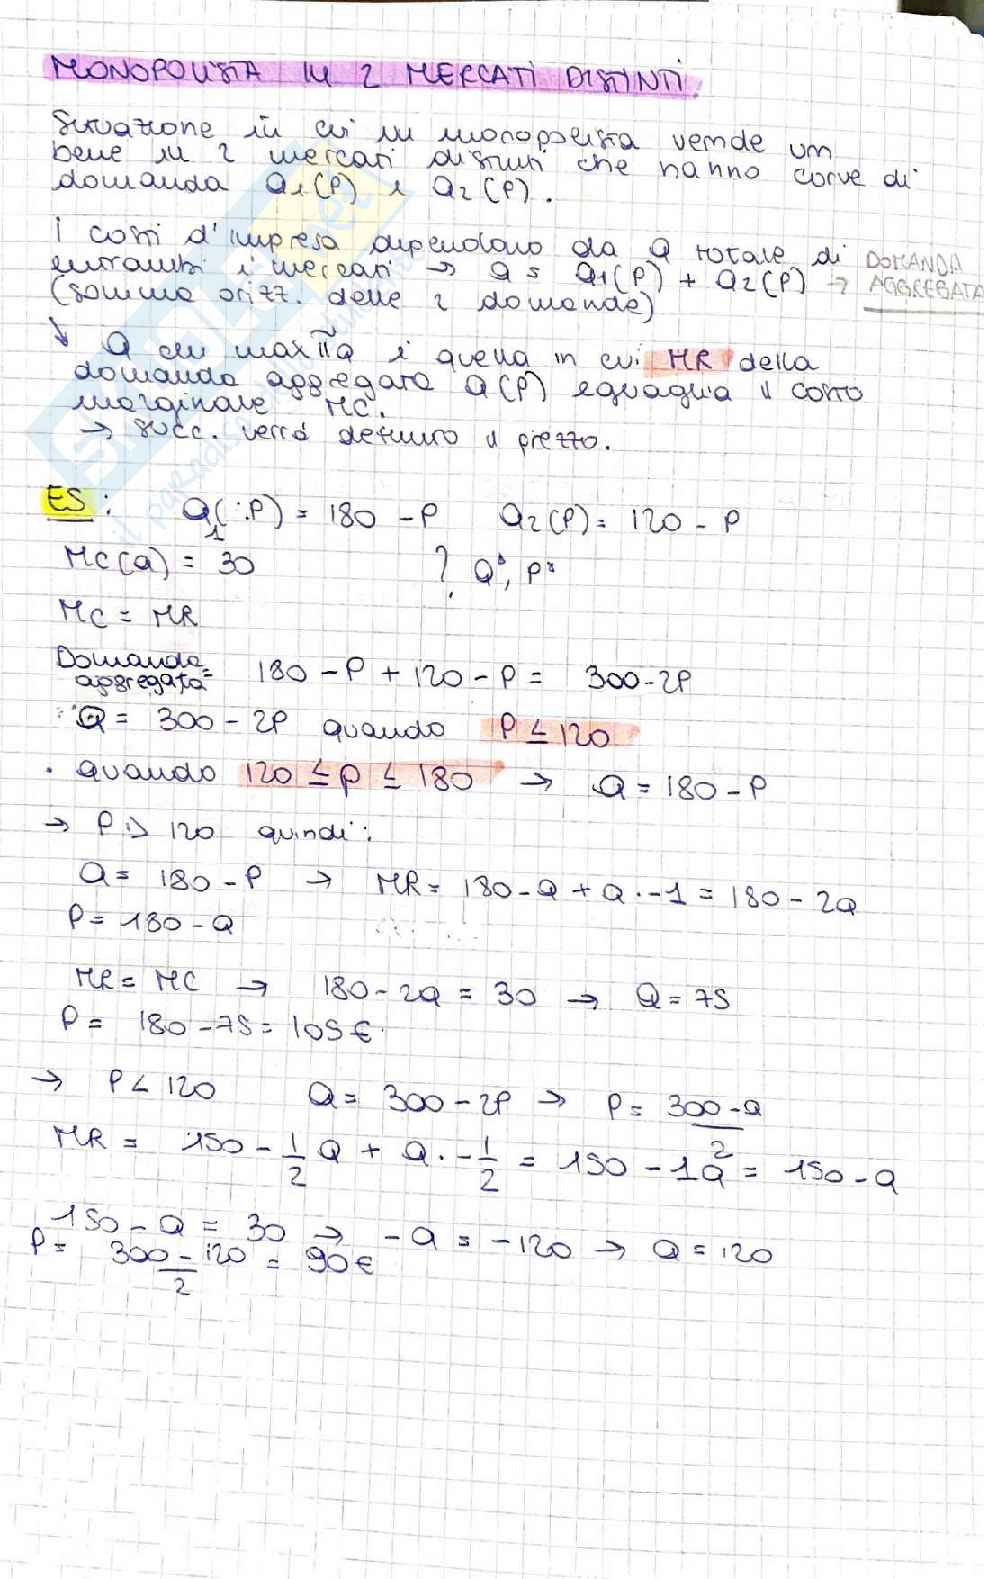 MONOPOLISTA IN 2 MERCATI DISTINTI
Situazione in cui un monopolista vende un
bene in 2 mercati distinti che hanno curve di
domanda Q1(P) e Q2(P).
I costi d'impresa dipendono da Q totale di
entrambi i mercati → Q = Q1(P) + Q2(P) → DOMANDA AGGREGATA
(somma orizz. delle 2 domande)
↓ Q che max π è quella in cui MR della
domanda aggregata Q(P) eguaglia il costo
marginale MC.
→ succ. verrà definito il prezzo.
ES: Q1(P) = 180 - P Q2(P) = 120 - P
MC(Q) = 30 ? Q*, P*
MC = MR
Domanda aggregata = 180 - P + 120 - P = 300 - 2P
Q = 300 - 2P quando P ≤ 120
. quando 120 ≤ P ≤ 180 → Q = 180 - P
→ P > 120 quindi:
Q = 180 - P → MR = 180 - Q + Q · -1 = 180 - 2Q
P = 180 - Q
MR = MC → 180 - 2Q = 30 → Q = 75
P = 180 - 75 = 105 €
→ P < 120 Q = 300 - 2P → P = 300 - Q / 2
MR = 150 - 1/2 Q + Q · - 1/2 = 150 - 1Q = 150 - Q
150 - Q = 30 → - Q = -120 → Q = 120
P = 300 - 120 / 2 = 90 €